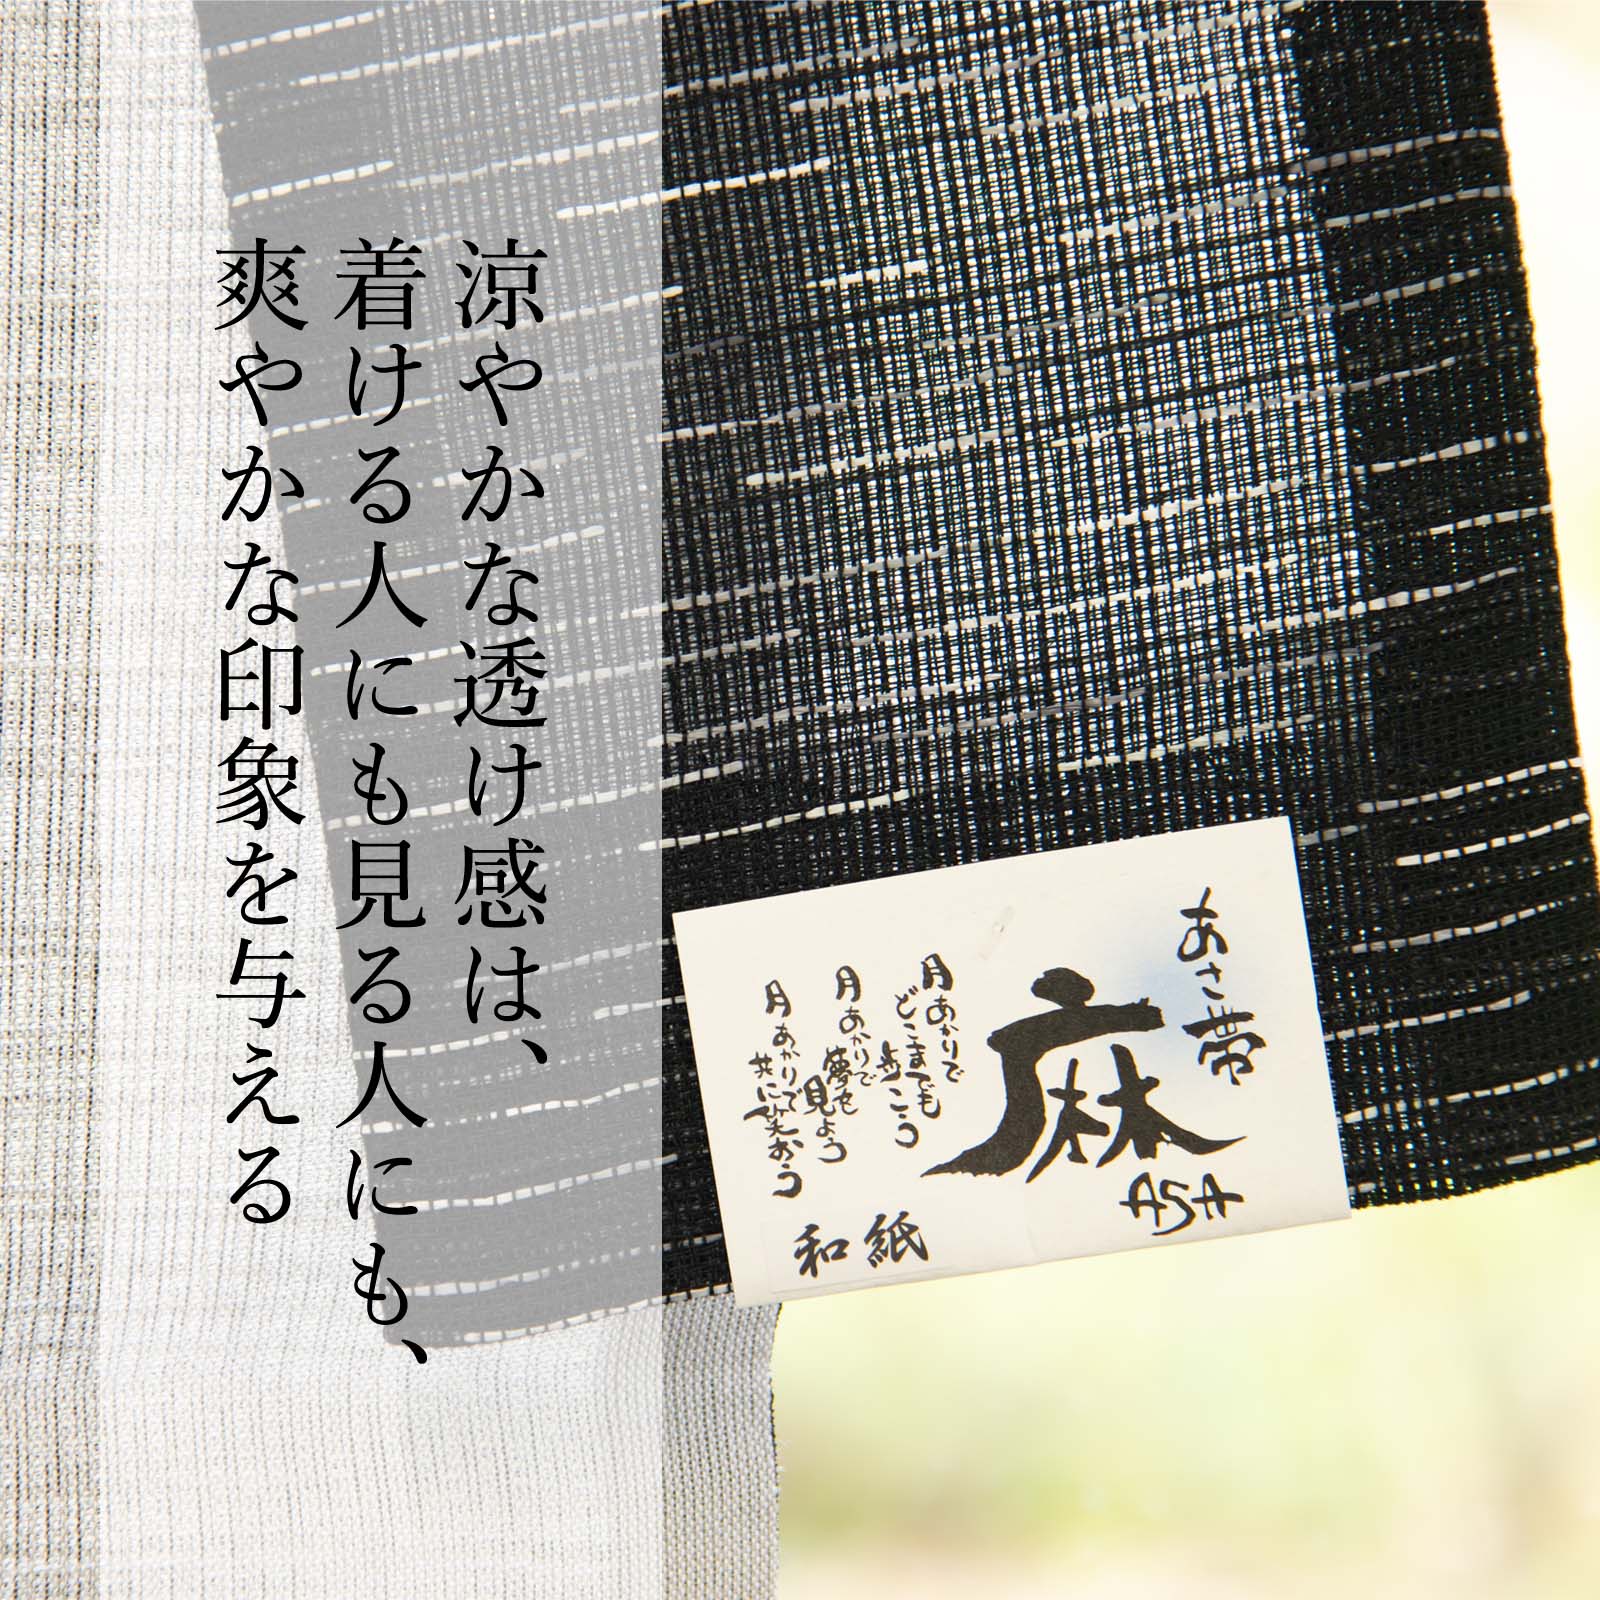 涼やかな透け感は、
着ける人にも見る人にも、
爽やかな印象を与える
あさ帯
麻
ASA
月あかりで
どこまでも
歩こう
月あかりで
夢を
見よう
月あかりで
共に笑おう
和紙